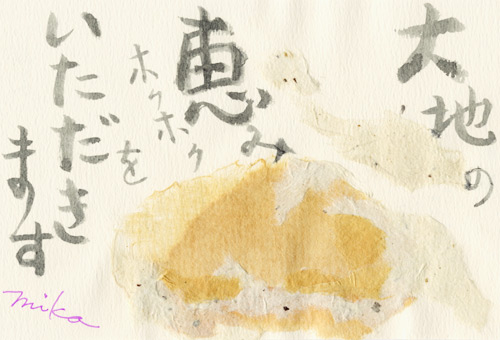 大地の
恵み
ホクホク
を
いただき
ます
mika